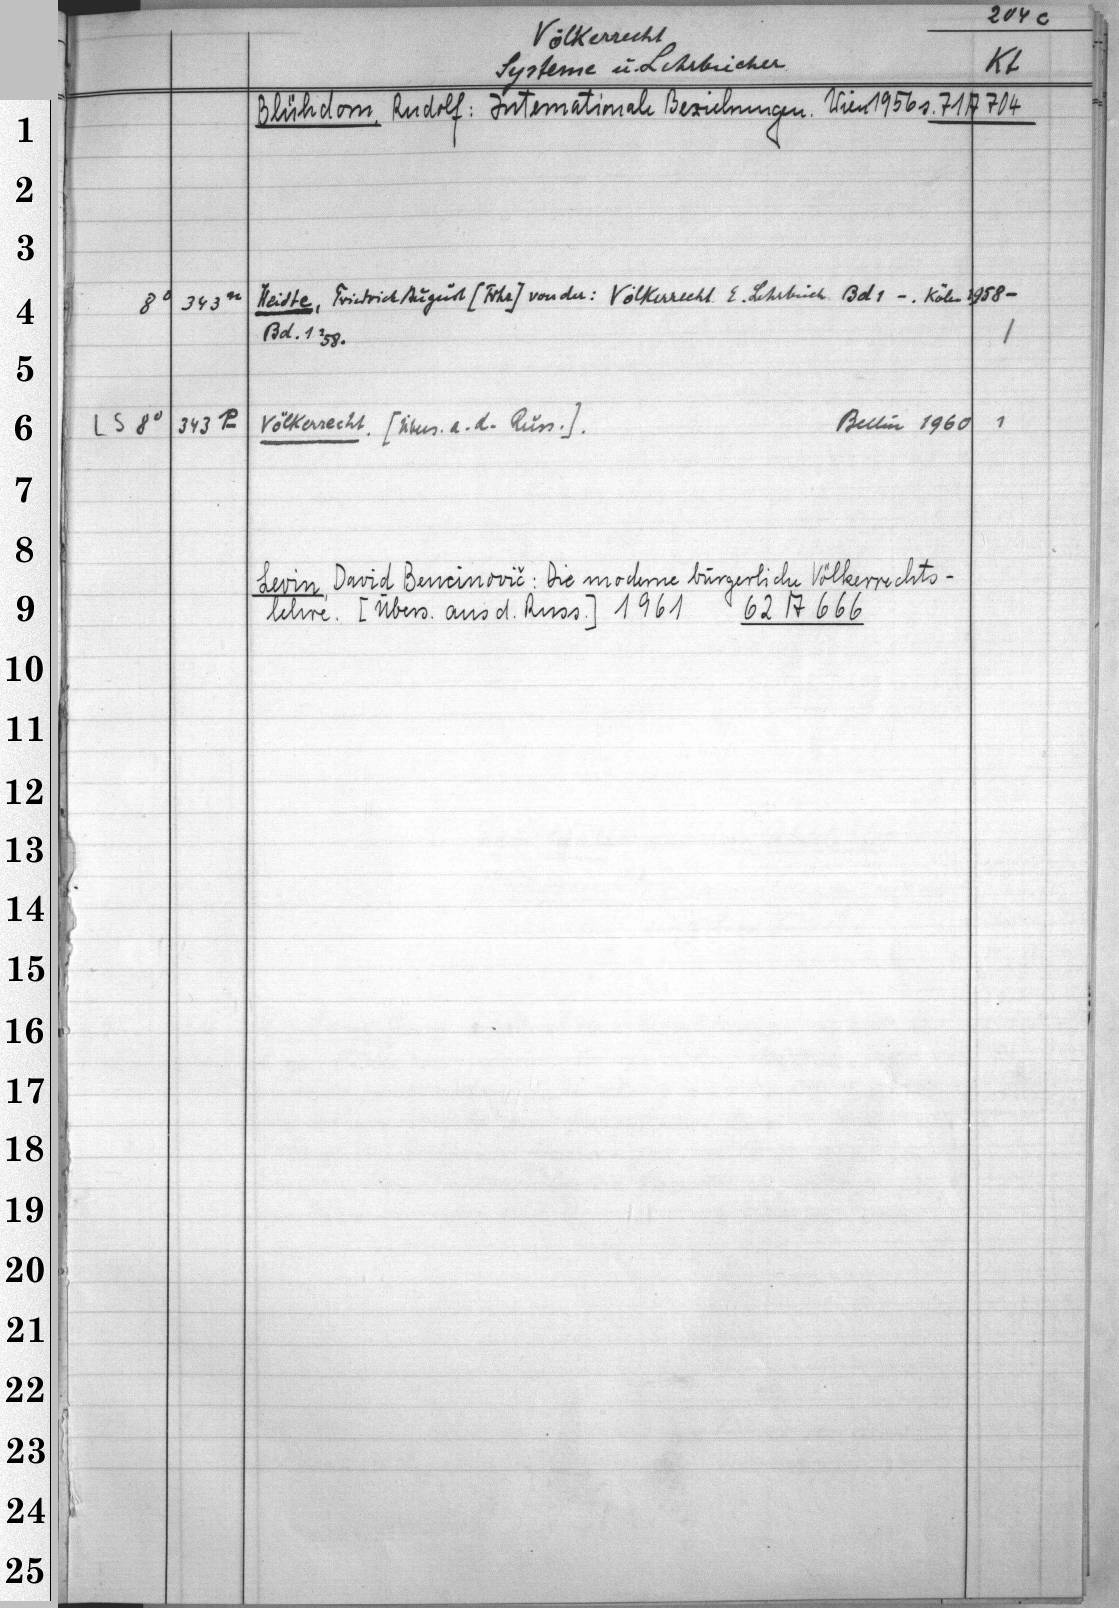 204 c
Völkerrecht
Systeme u. Lehrbücher Kt
1 Blühdorn, Rudolf: Internationale Beziehungen. Wien 1956 s. 71/7 704
2
3
4 8° 343 n Heidte, Friedrich August [Frhr] von der: Völkerrecht E. Lehrbuch Bd 1 –. Köln 1958 –
Bd. 1 '58. /
5
6 LS 8° 343 p Völkerrecht. [Übers. a. d. Russ.]. Berlin 1960 1
7
8
Levin, David Bencinovič: Die moderne bürgerliche Völkerrechts-
9 lehre. [Übers. aus d. Russ.] 1961 62/7 666
10
11
12
13
14
15
16
17
18
19
20
21
22
23
24
25